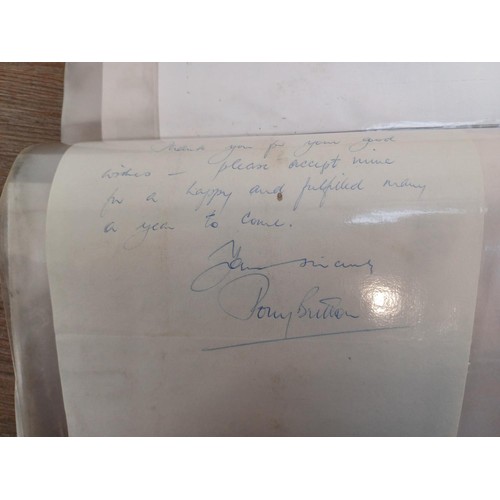 Thank you for your good
wishes — please accept mine
for a happy and fulfilled many
a year to come.
Yours sincerely
Tony Britton